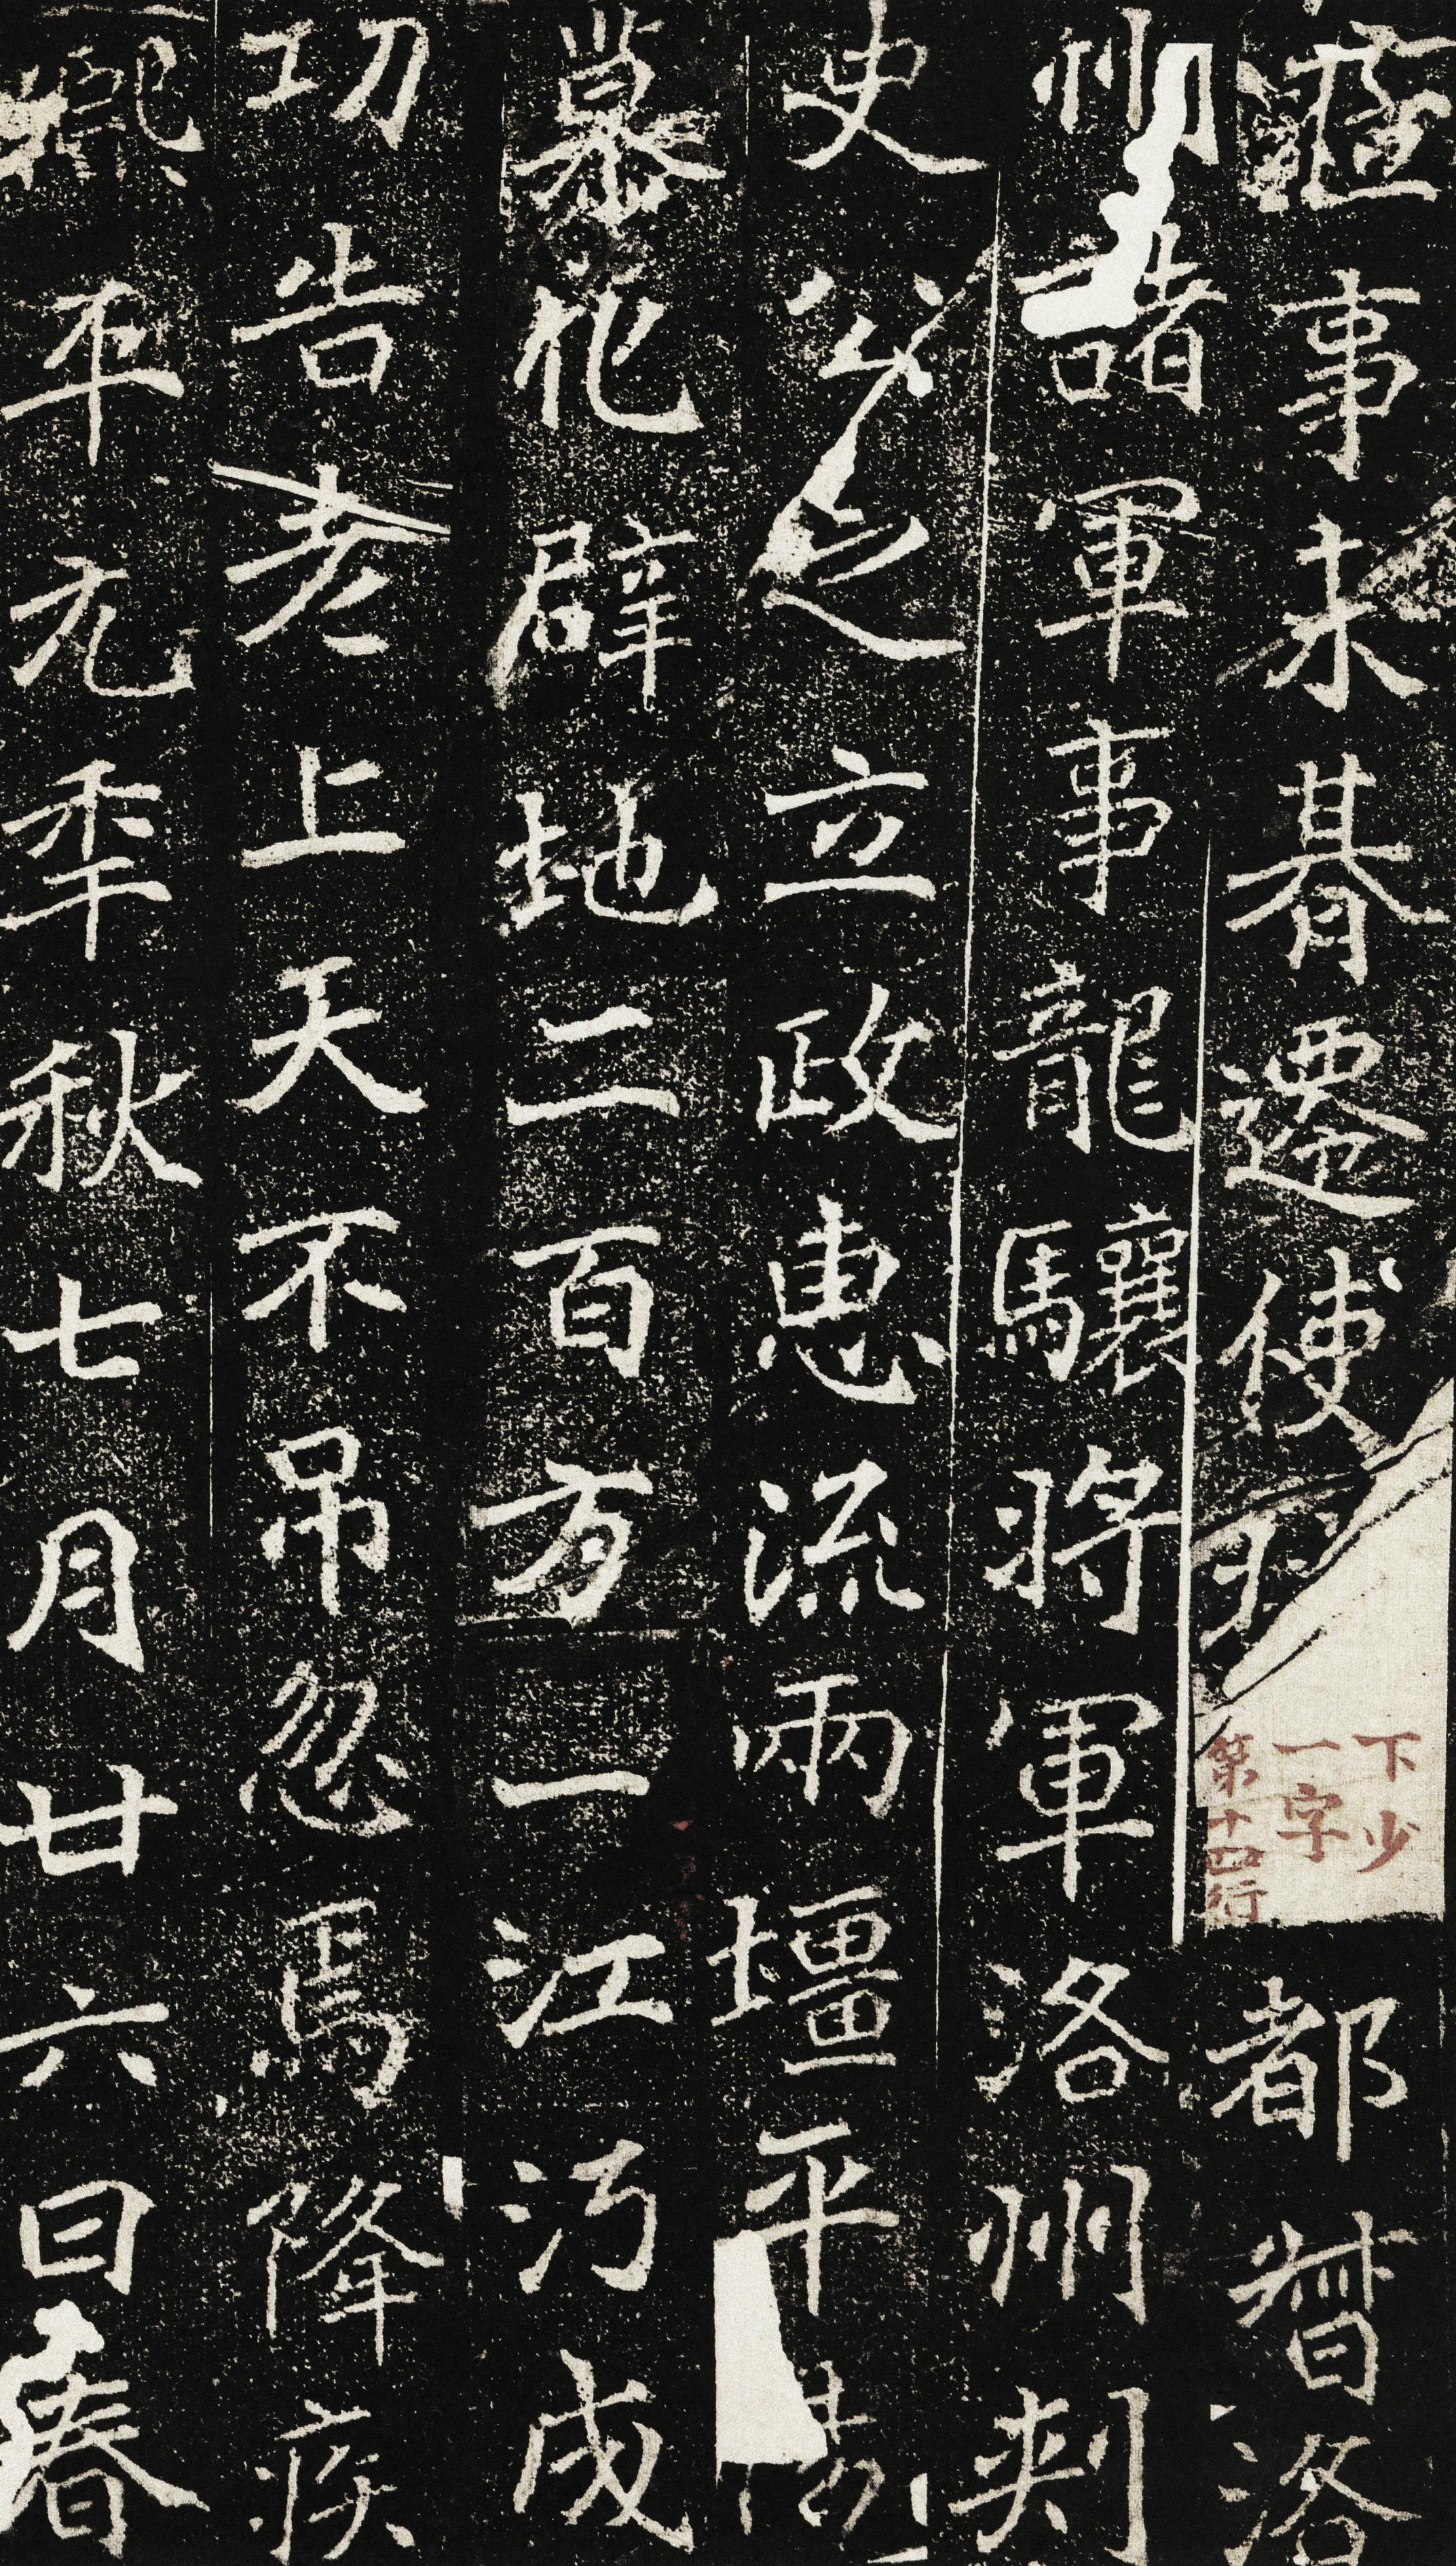 事未朞遷使持
下少
一字
第十四行
都督洛
州諸軍事龍驤將軍洛州刾
史公之立政惠流兩壃平
慕化辟地二百方一江沔成
功告老上天不吊忽焉降疾
熙平元秊秋七月廿六日春